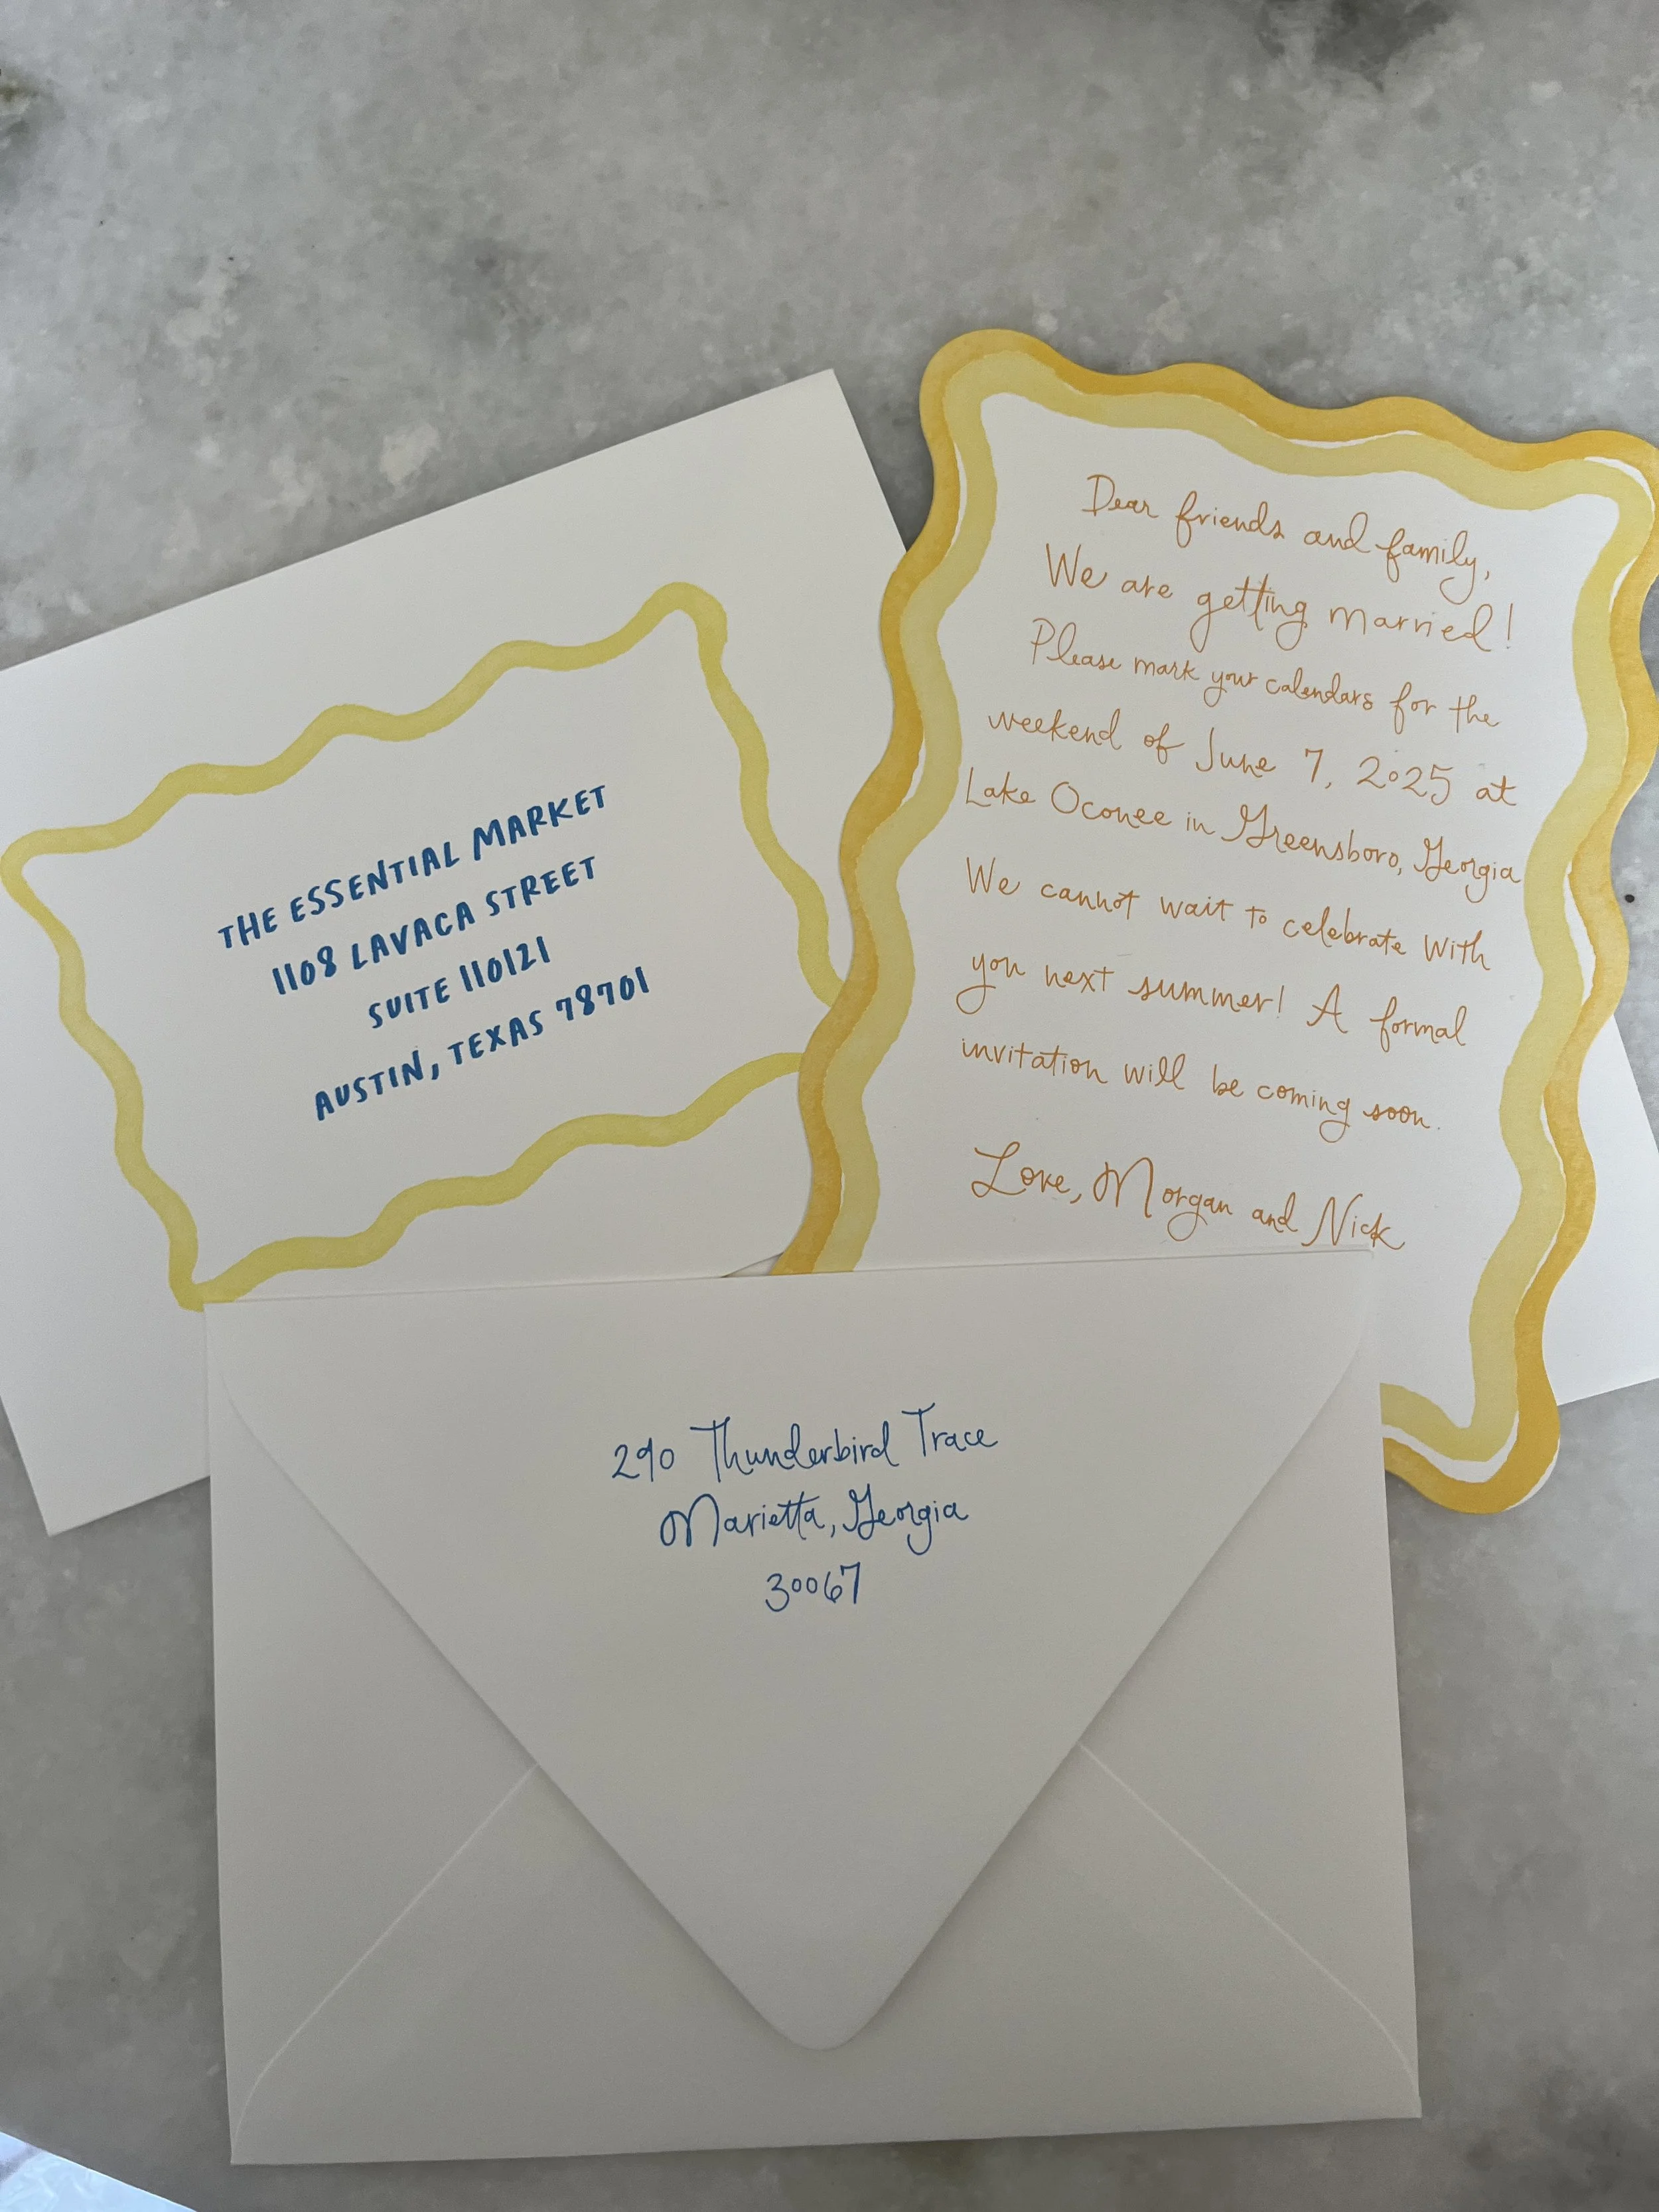 THE ESSENTIAL MARKET
1108 LAVACA STREET
SUITE 110121
AUSTIN, TEXAS 78701
Dear friends and family,
We are getting married!
Please mark your calendars for the
weekend of June 7, 2025 at
Lake Oconee in Greensboro, Georgia
We cannot wait to celebrate with
you next summer! A formal
invitation will be coming soon.
Love, Morgan and Nick
290 Thunderbird Trace
Marietta, Georgia
30067